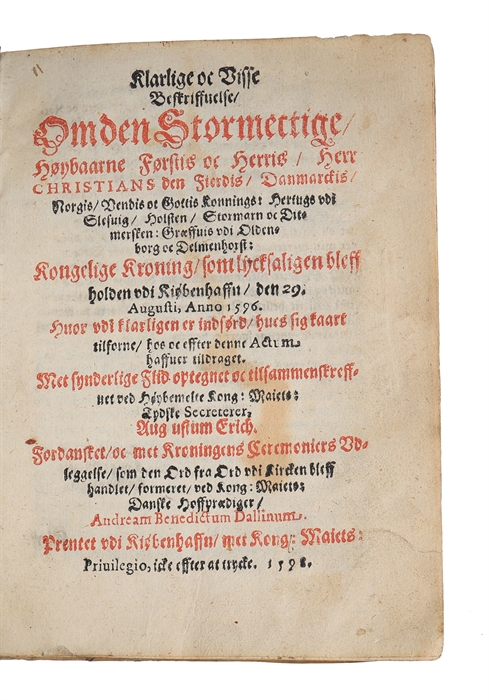 Klarlige oc Visse
Beskriffuelse/
Om den Stormectige/
Høybaarne Førstis oc Herris / Herr
CHRISTIANS den Fierdis / Danmarckis /
Norgis/ Vendis oc Gottis Konnings: Hertugs vdi
Slesuig / Holsten / Stormarn oc Dit-
mersken: Græffuis vdi Olden-
borg oc Delmenhorst:
Kongelige Kroning / som lycksaligen bleff
holden vdi Kiøbenhaffn / den 29.
Augusti, Anno 1596.
Huor vdi klarligen er indførd / hues sig baade
tilforne / hos oc effter denne Actum
haffuer tildraget.
Met synderlige Flid optegnet oc tilsammenskreff-
uet ved Høybemelte Kong: Maiets:
Tydske Secreterer,
Augustum Erich.
Fordansket/ oc met Kroningens Ceremoniers Vd-
leggelse / som den Ord fra Ord vdi Kircken bleff
handlet / formeret / ved Kong: Maiets:
Danske Hoffprædiger /
Andream Benedictum Dallinum.
Prentet vdi Kiøbenhaffn / met Kong: Maiets:
Priuilegio, icke effter at trycke. 1598.